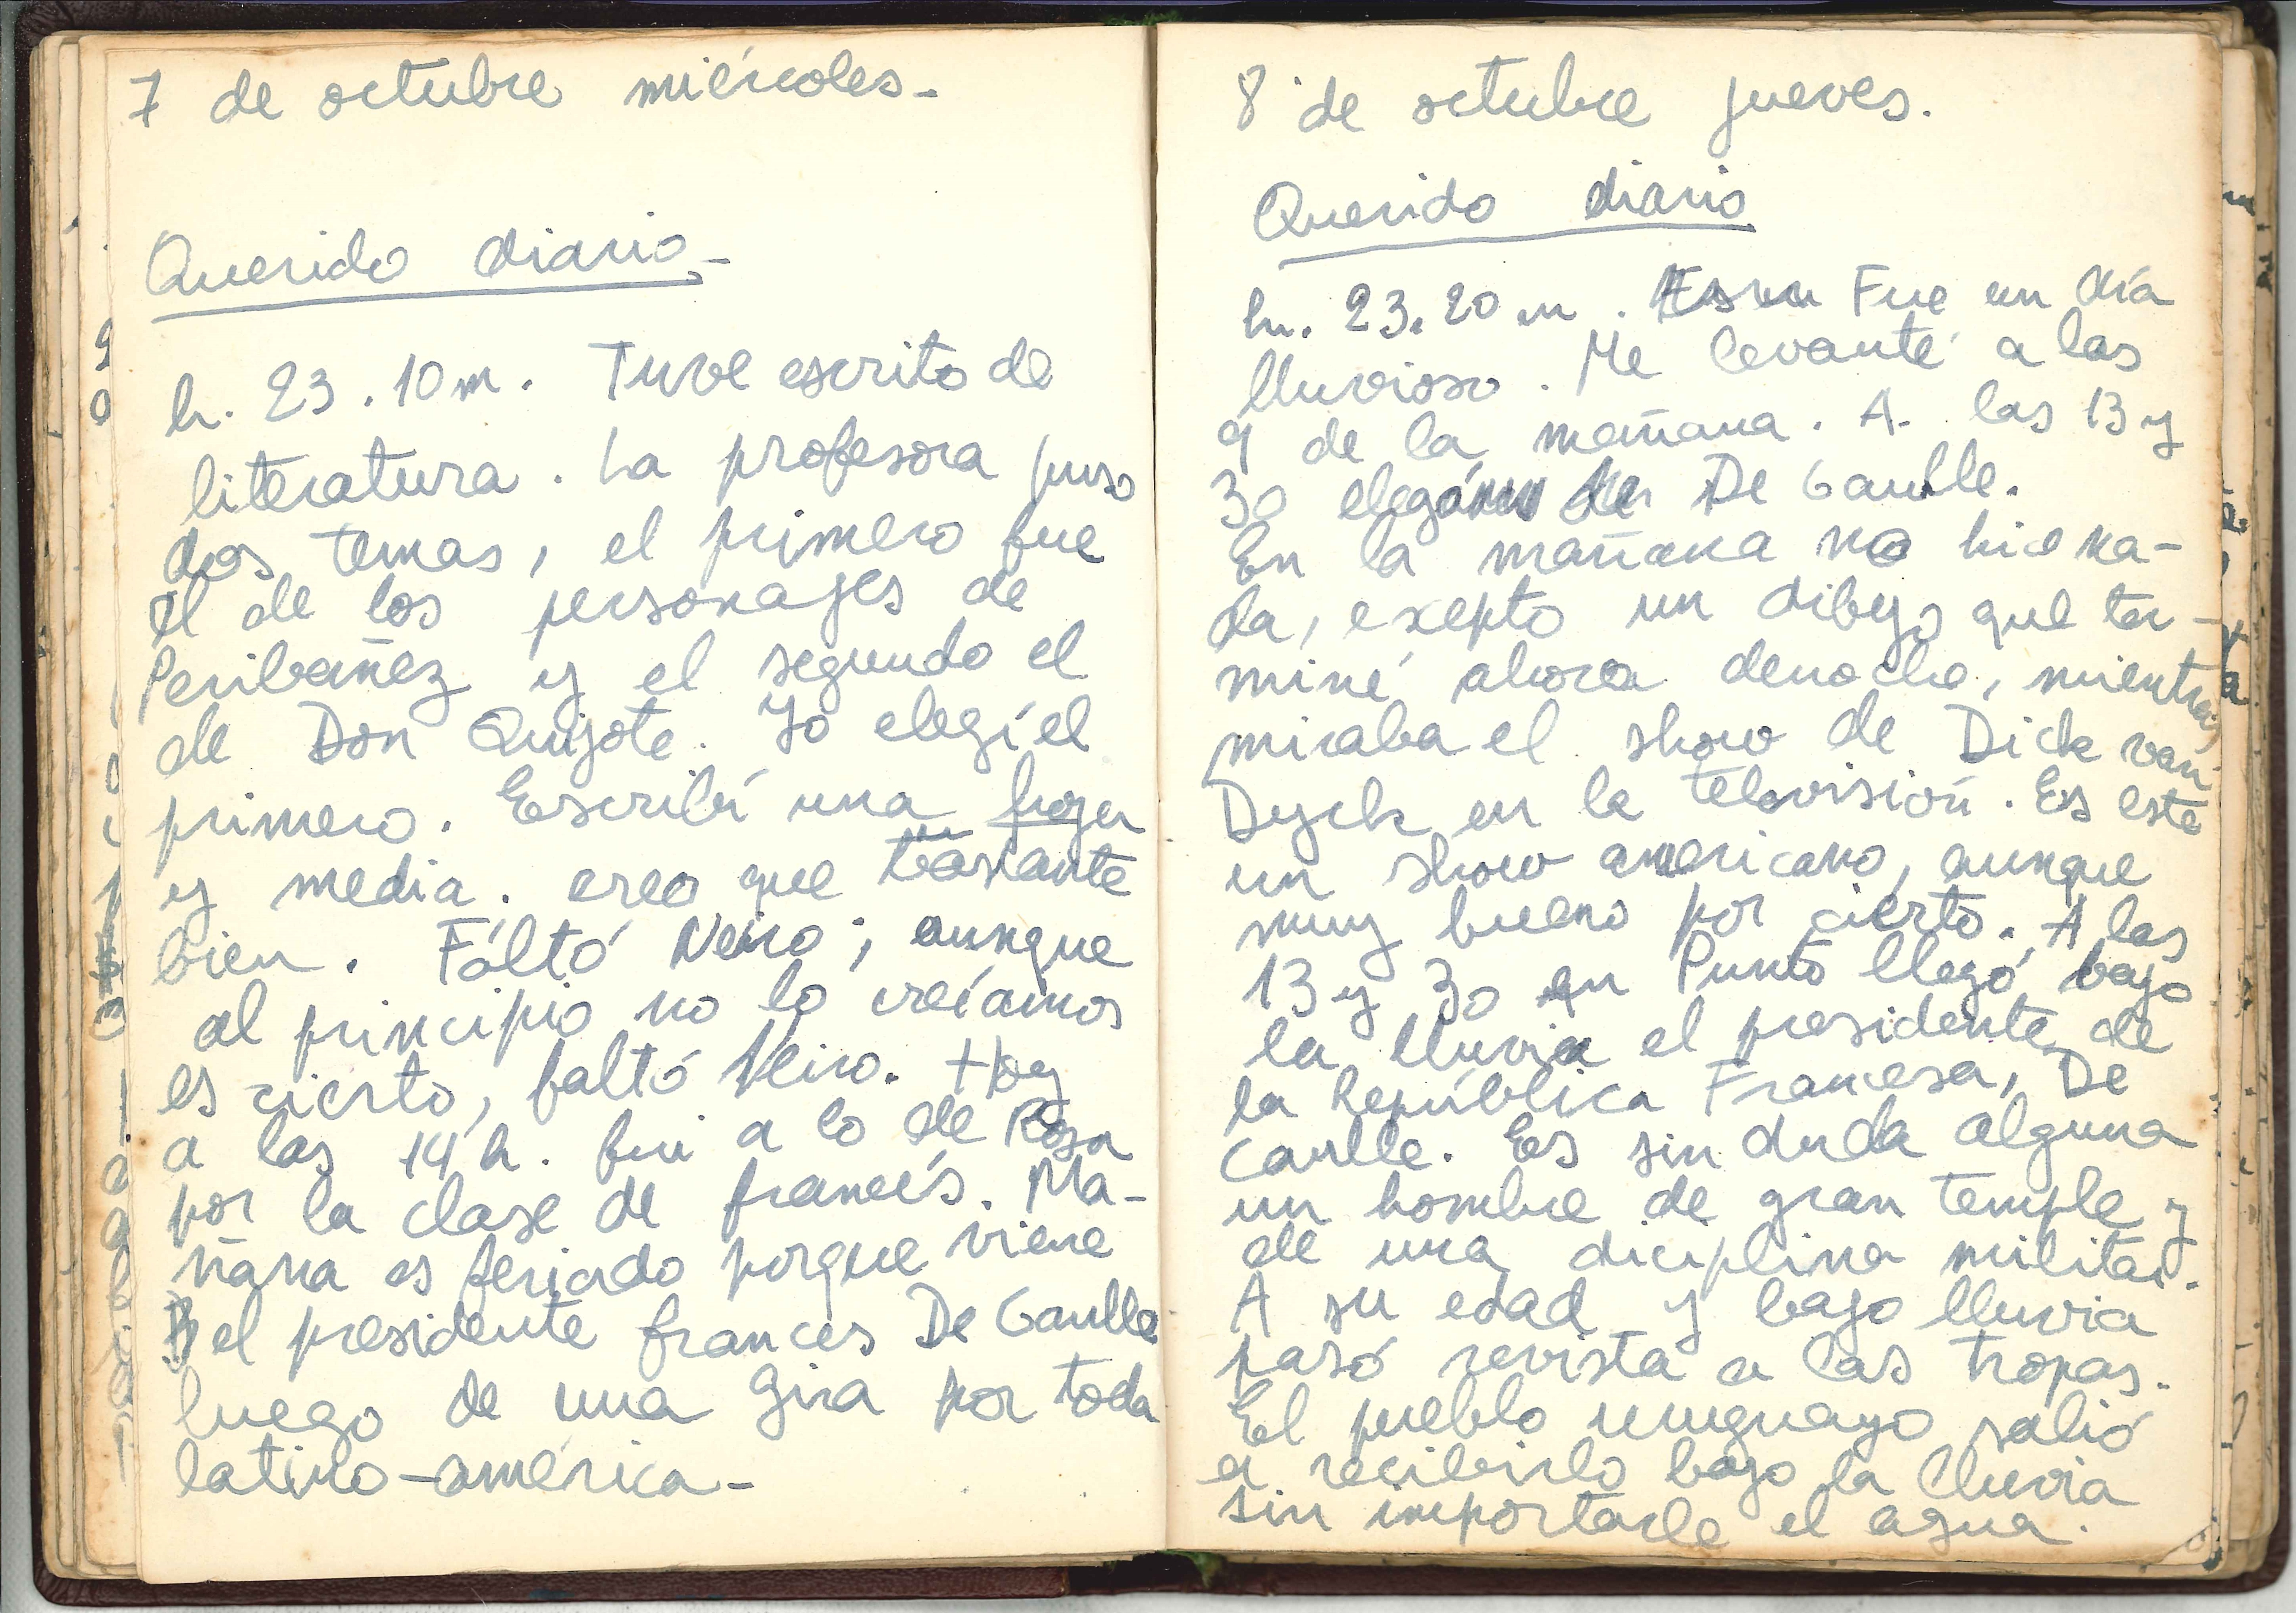 7 de octubre miércoles-
Querido diario-
h. 23.10m. Tuve escrito de
literatura. La profesora puso
dos temas, el primero fue
el de los personajes de
Peribañez y el segundo el
de Don Quijote. Yo elegí el
primero. Escribí una hoja
y media. creo que bastante
bien. Fáltó Neiro; aunque
al principio no lo creíamos
es cierto, faltó Neiro. Hoy
a las 14 h. fui a lo de Rosa
por la clase de francés. Ma-
ñana es feriado porque viene
el presidente frances De Gaulle
luego de una gira por toda
latino-américa-
8 de octubre jueves.
Querido diario
h. 23.20 m. Fue un día
lluvioso. Me levanté a las
9 de la mañana. A las 13 y
30 De Gaulle.
En la mañana no hice na-
da, exepto un dibujo que ter-
miné ahora denoche, mientras
miraba el show de Dick van
Dyck en la televisión. Es este
un show americano, aunque
muy bueno por cierto. A las
13 y 30 en Punto llegó bajo
la lluvia el presidente de
la República Francesa, De
Caulle. Es sin duda alguna
un hombre de gran temple y
de una diciplina militar.
A su edad y bajo lluvia
pasó revista a las tropas.
El pueblo uruguayo salió
a recibirlo bajo la lluvia
sin importarle el agua.